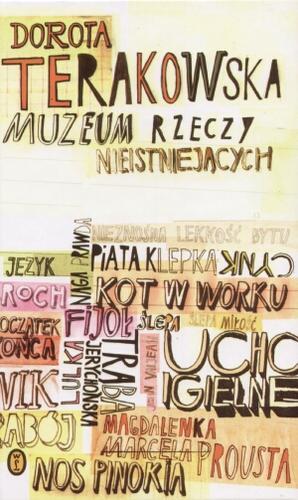 DOROTA
TERAKOWSKA
MUZEUM RZECZY
NIEISTNIEJĄCYCH
NIEZNOŚNA LEKKOŚĆ BYTU
NAGA PRAWDA
JĘZYK
PIĄTA KLEPKA
CYNK
ROCH
KOT W WORKU
POCZĄTEK
KOŃCA
FIJOŁ
ŚLEPA
ŚLEPA MIŁOŚĆ
LULKA
TRĄBA
JERYCHOŃSKA
UCHO
IGIELNE
WIK
RABÓJ
MAGDALENKA
MARCELA PROUSTA
NOS PINOKIA